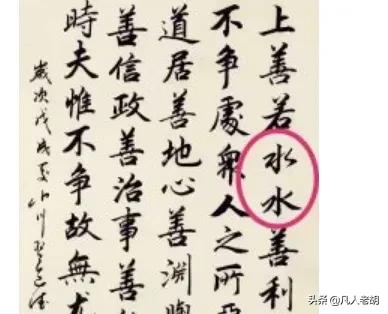 上善若水水善利
不争處衆人之所
道居善地心善淵
善信政善治事善
時夫惟不争故無
歲次戊戌
头条 @凡人老胡